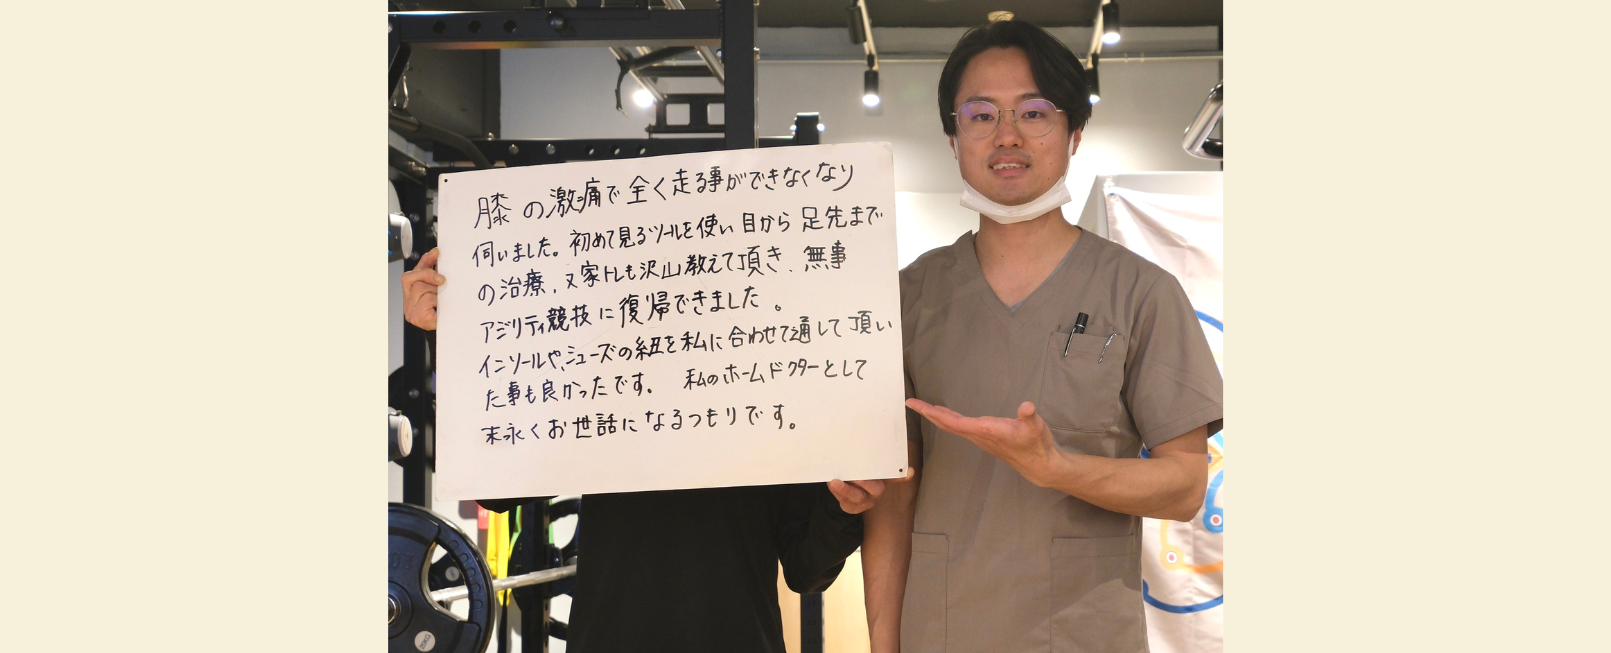 膝の激痛で全く走る事ができなくなり
伺いました。初めて見るツールを使い目から足先まで
の治療、又家トレも沢山教えて頂き、無事
アジリティ競技に復帰できました。
インソールや、シューズの紐を私に合わせて通して頂い
た事も良かったです。 私のホームドクターとして
末永くお世話になるつもりです。